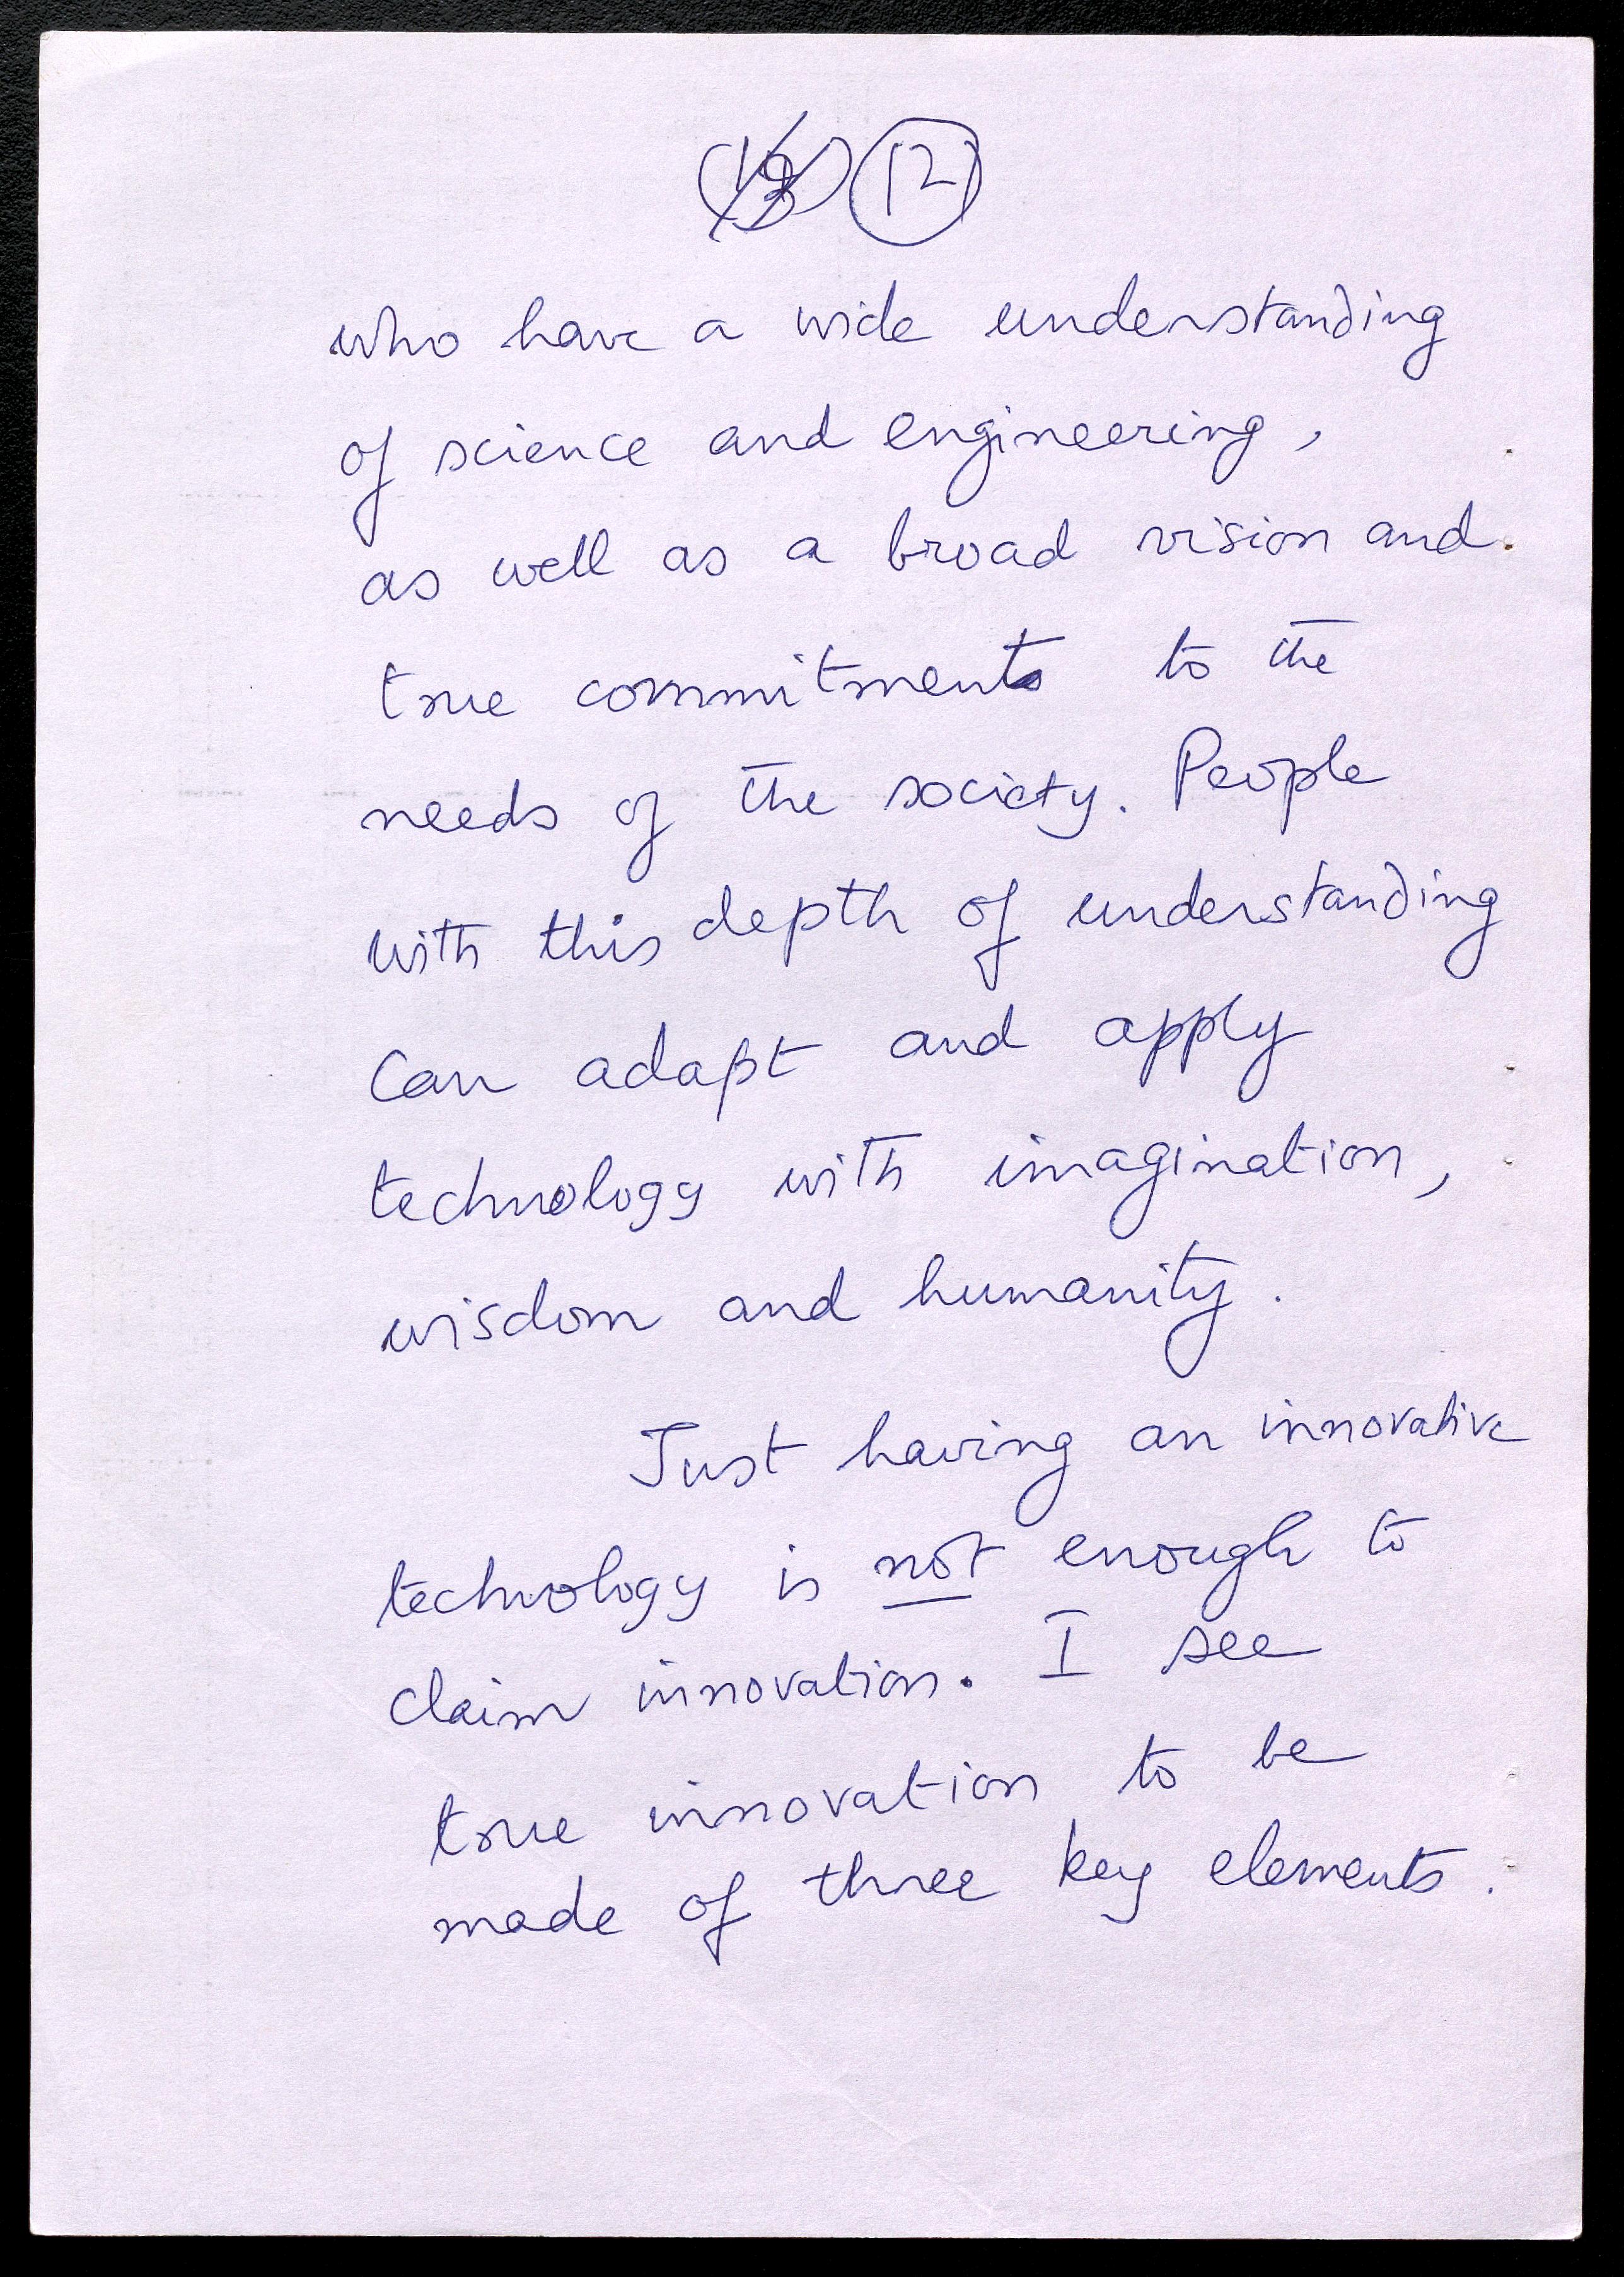 12
who have a wide understanding
of science and engineering,
as well as a broad vision and
true commitments to the
needs of the society. People
with this depth of understanding
Can adapt and apply
technology with imagination,
wisdom and humanity.
Just having an innovative
technology is not enough to
claim innovation. I see
true innovation to be
made of three key elements.